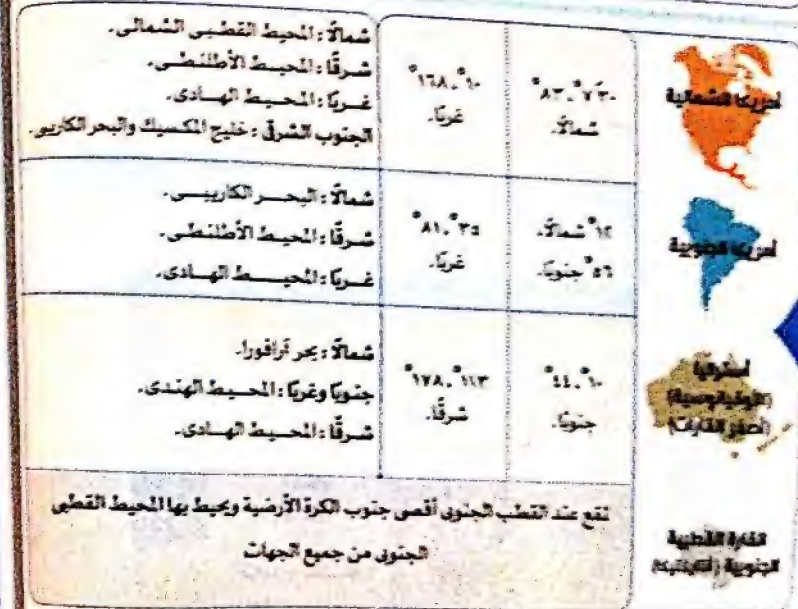 أمريكا الشمالية
٨٣°
شمالًا.
٦٠°، ١٦٨°
غربًا.
شمالًا: المحيط القطبى الشمالى.
شرقًا: المحيط الأطلنطى.
غربًا: المحيط الهادى.
الجنوب الشرقى: خليج المكسيك والبحر الكاريبى.
أمريكا الجنوبية
١٢° شمالًا.
٥٦° جنوبًا.
٣٥°، ٨١°
غربًا.
شمالًا: البحر الكاريبى.
شرقًا: المحيط الأطلنطى.
غربًا: المحيط الهادى.
أستراليا
(الأوقيانوسية)
(أصغر القارات)
١٠°، ٤٤°
جنوبًا.
١١٣°، ١٧٨°
شرقًا.
شمالًا: بحر آرافورا.
جنوبًا وغربًا: المحيط الهندى.
شرقًا: المحيط الهادى.
القارة القطبية
الجنوبية
تقع عند القطب الجنوبى أقصى جنوب الكرة الأرضية ويحيط بها المحيط القطبى
الجنوبى من جميع الجهات